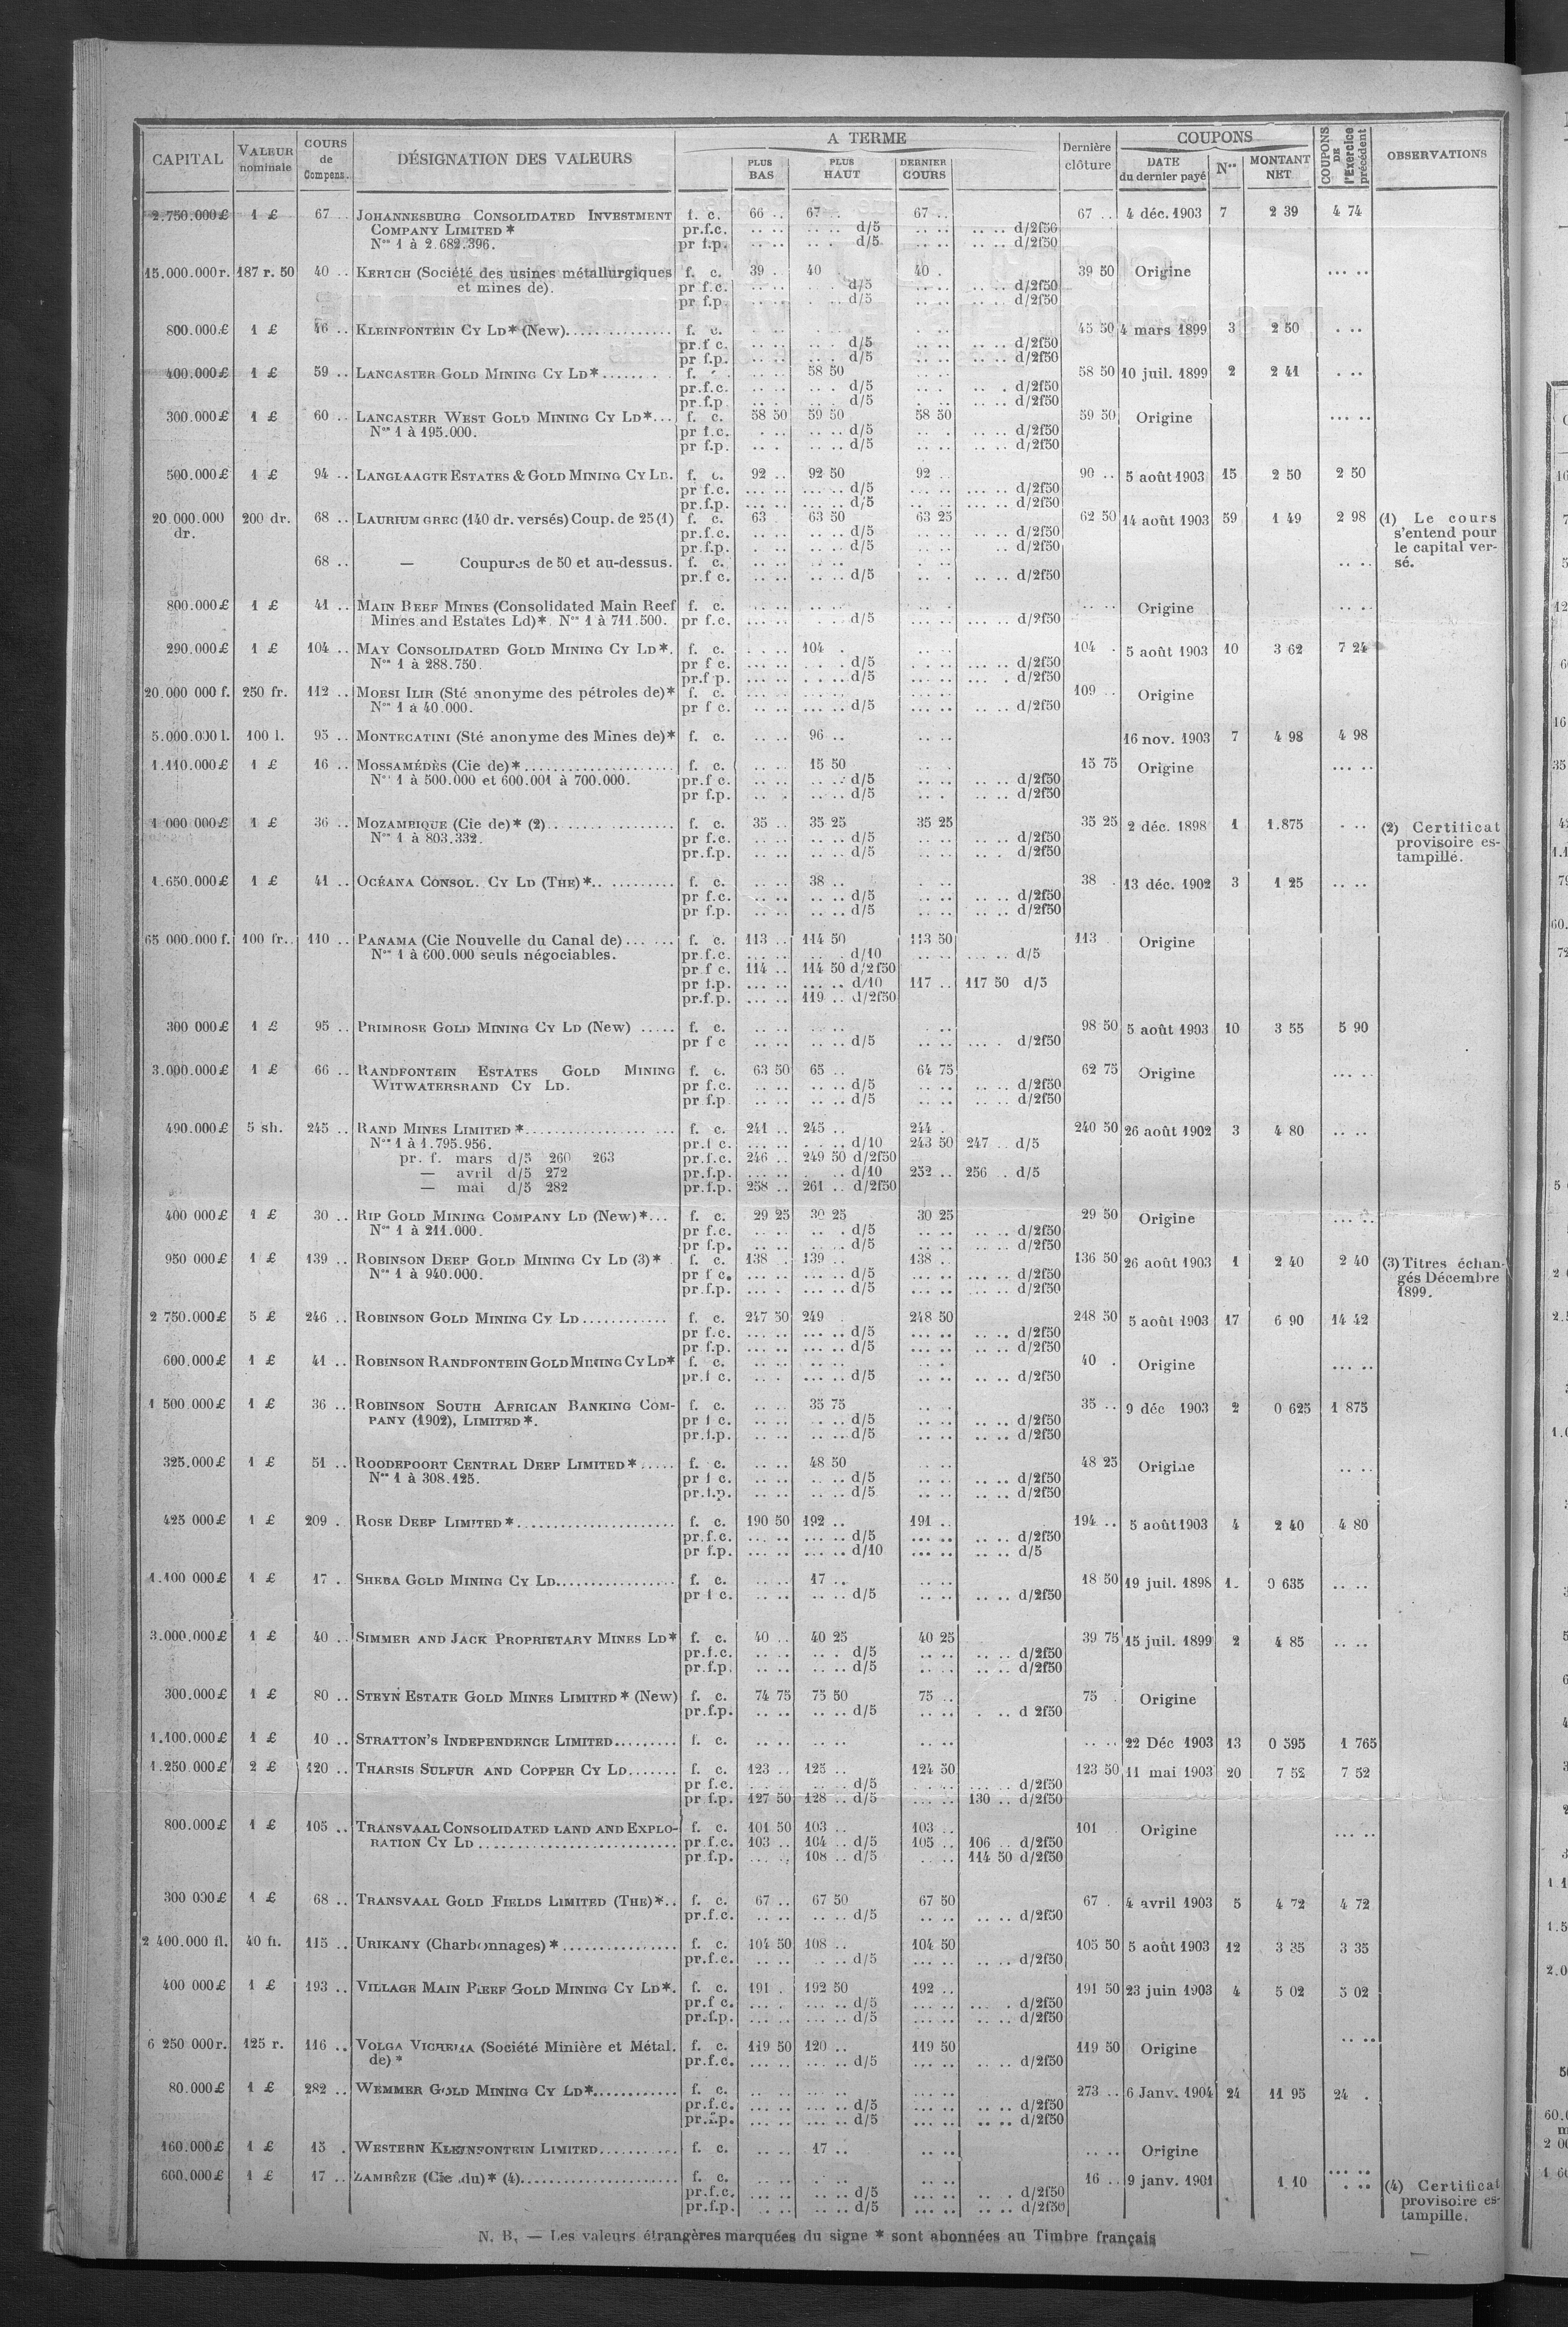 CAPITAL VALEUR nominale COURS de Compens. DÉSIGNATION DES VALEURS A TERME PLUS BAS PLUS HAUT DERNIER COURS Dernière clôture COUPONS DATE du dernier payé Nos MONTANT NET COUPONS DE l'Exercice précédent OBSERVATIONS
2.750.000£ 1 £ 67 .. JOHANNESBURG CONSOLIDATED INVESTMENT f. c. 66 .. 67 .. 67 .. 67 .. 4 déc. 1903 7 2 39 4 74
COMPANY LIMITED * pr.f.c. .. .. .. .. d/5 .. .. .. .. d/2f50
Nos 1 à 2.682.396. pr f.p. .. .. .. .. d/5 .. .. .. .. d/2f50
15.000.000 r. 187 r. 50 40 .. KERTCH (Société des usines métallurgiques f. c. 39 . 40 . 40 . 39 50 Origine ... ..
et mines de). pr f.c. .. .. d/5 .. .. .. .. d/2f50
pr f.p. .. .. d/5 .. .. .. .. d/2f50
800.000£ 1 £ 46 .. KLEINFONTEIN CY LD* (New)............... f. c. 45 50 4 mars 1899 3 2 50 . ..
pr.f c. .. .. d/5 .. .. .. .. d/2f50
pr f.p. .. .. d/5 .. .. .. .. d/2f50
400.000£ 1 £ 59 .. LANCASTER GOLD MINING CY LD*........ f. .. .. 58 50 58 50 10 juil. 1899 2 2 41 . ..
pr.f.c. .. .. d/5 .. .. . d/2f50
pr.f.p .. .. d/5 .. .. .. .. d/2f50
300.000£ 1 £ 60 .. LANCASTER WEST GOLD MINING CY LD*... f. c. 58 50 59 50 58 50 59 50 Origine ... ..
Nos 1 à 195.000. pr f.c. . .. .. .. d/5 .. . .. .. d/2f50
pr f.p. .. . .. .. d/5 .. . .. .. d/2f50
500.000£ 1 £ 94 .. LANGLAAGTE ESTATES & GOLD MINING CY LD. f. c. 92 .. 92 50 92 .. 90 .. 5 août 1903 15 2 50 2 50
pr f.c. ... .. ... .. d/5 .. .. ... .. d/2f50
pr.f.p. ... .. ... .. d/5 .. .. ... .. d/2f50
20.000.000 200 dr. 68 .. LAURIUM GREC (140 dr. versés) Coup. de 25 (1) f. c. 63 63 50 63 25 62 50 14 août 1903 59 1 49 2 98 (1) Le cours
dr. pr.f.c. .. .. .. .. d/5 .. .. .. .. d/2f50 s'entend pour
pr.f.p. .. .. . .. d/5 .. .. .. d/2f50 le capital ver-
68 .. — Coupures de 50 et au-dessus. f. c. .. .. .. .. . .. .. .. sé.
pr.f c. .. .. .. .. d/5 .. . .. .. d/2f50
800.000£ 1 £ 41 .. MAIN REEF MINES (Consolidated Main Reef f. c. .. .. ... .. .. .. .. .. Origine .. ..
Mines and Estates Ld)*. Nos 1 à 711.500. pr f.c. ... .. . .. d/5 ... .. ... .. d/2f50
290.000£ 1 £ 104 .. MAY CONSOLIDATED GOLD MINING CY LD*. f. c. .. .. 104 . .. .. 104 . 5 août 1903 10 3 62 7 24
Nos 1 à 288.750. pr f c. ... .. .. .. d/5 .. .. ... .. d/2f50
pr.f p. ... .. .. .. d/5 ... .. ... . d/2f50
20.000 000 f. 250 fr. 112 .. MOESI ILIR (Sté anonyme des pétroles de)* f. c. ... .. ... .. ... .. 109 .. Origine
Nos 1 à 40.000. pr f c. .. .. ... .. d/5 ... .. .. .. d/2f50
5.000.000 l. 100 l. 95 .. MONTECATINI (Sté anonyme des Mines de)* f. c. .. .. 96 .. .. .. 16 nov. 1903 7 4 98 4 98
1.110.000£ 1 £ 16 .. MOSSAMÉDÈS (Cie de)*..................... f. c. .. .. 15 50 15 75 Origine ... ..
Nos 1 à 500.000 et 600.001 à 700.000. pr.f c. .. .. .. .. d/5 .. .. .. .. d/2f50
pr f.p. .. . .. .. d/5 .. . .. .. d/2f50
1 000 000£ 1 £ 36 .. MOZAMBIQUE (Cie de)* (2)................ f. c. 35 .. 35 25 35 25 35 25 2 déc. 1898 1 1.875 . .. (2) Certificat
Nos 1 à 803.332. pr f.c. .. .. .. .. d/5 .. .. .. .. d/2f50 provisoire es-
pr.f.p. .. .. .. .. d/5 .. .. .. . d/2f50 tampillé.
1.650.000£ 1 £ 41 .. OCÉANA CONSOL. CY LD (THE)*........... f. c. .. .. 38 .. . .. 38 . 13 déc. 1902 3 1 25 .. ..
pr f.c. .. .. .. .. d/5 .. .. .. .. d/2f50
pr f.p. .. .. .. .. d/5 .. .. .. .. d/2f50
65 000.000 f. 100 fr.. 110 .. PANAMA (Cie Nouvelle du Canal de)...... f. c. 113 .. 114 50 113 50 113 . Origine
Nos 1 à 600.000 seuls négociables. pr.f.c. ... .. . d/10 ... .. ... .. d/5
pr f c. 114 .. 114 50 d/2f50
pr f.p. ... .. ... .. d/10 117 .. 117 50 d/5
pr.f.p. ... .. 119 .. d/2f50
300 000£ 1 £ 95 .. PRIMROSE GOLD MINING CY LD (New) ..... f. c. .. .. .. .. . .. 98 50 5 août 1903 10 3 55 5 90
pr f c .. .. .. .. d/5 .. .. ... . d/2f50
3.000.000£ 1 £ 66 .. RANDFONTEIN ESTATES GOLD MINING f. c. 63 50 65 .. 64 75 62 75 Origine ... ..
WITWATERSRAND CY LD. pr f.c. .. .. .. .. d/5 .. .. .. .. d/2f50
pr f.p .. .. .. .. d/5 .. .. .. .. d/2f50
490.000£ 5 sh. 245 .. RAND MINES LIMITED *.................... f. c. 241 .. 245 .. 244 . 240 50 26 août 1902 3 4 80 .. ..
Nos 1 à 1.795.956. pr.f c. ... .. . .. d/10 243 50 247 .. d/5
pr. f. mars d/5 260 263 pr.f.c. 246 .. 249 50 d/2f50
— avril d/5 272 pr.f.p. ... .. .. d/10 252 .. 256 .. d/5
— mai d/5 282 pr.f.p. 258 .. 261 .. d/2f50
400 000£ 1 £ 30 .. RIP GOLD MINING COMPANY LD (New)*... f. c. 29 25 30 25 30 25 29 50 Origine ... ..
Nos 1 à 211.000. pr f.c. .. .. .. . d/5 .. .. .. .. d/2f50
pr f.p. .. .. .. .. d/5 .. .. .. .. d/2f50
950 000£ 1 £ 139 .. ROBINSON DEEP GOLD MINING CY LD (3)* f. c. 138 .. 139 .. 138 .. 136 50 26 août 1903 1 2 40 2 40 (3) Titres échan-
Nos 1 à 940.000. pr f c. ... .. ... .. d/5 ... .. ... .. d/2f50 gés Décembre
pr.f.p. ... . ... .. d/5 ... .. ... .. d/2f50 1899.
2 750.000£ 5 £ 246 .. ROBINSON GOLD MINING CY LD ............ f. c. 247 50 249 248 50 248 50 5 août 1903 17 6 90 14 42
pr f.c. ... .. ... .. d/5 ... .. .. .. d/2f50
pr f.p. ... .. ... .. d/5 ... .. .. .. d/2f50
600.000£ 1 £ 41 .. ROBINSON RANDFONTEIN GOLD MINING CY LD* f. c. .. .. .. .. 40 . Origine ... ..
pr.f c. .. . ... .. d/5 .. .. .. .. d/2f50
1 500.000£ 1 £ 36 .. ROBINSON SOUTH AFRICAN BANKING COM- f. c. .. .. 35 75 .. .. 35 .. 9 déc 1903 2 0 625 1 875
PANY (1902), LIMITED*. pr f c. .. .. . .. d/5 .. .. .. .. d/2f50
pr.f.p. .. .. .. .. d/5 .. .. .. .. d/2f50
325.000£ 1 £ 51 .. ROODEPOORT CENTRAL DEEP LIMITED*..... f. c. .. .. 48 50 .. .. 48 25 Origine .. ..
Nos 1 à 308.125. pr f c. .. .. .. .. d/5 .. .. .. .. d/2f50
pr.f.p. .. .. .. .. d/5 .. .. .. .. d/2f50
425 000£ 1 £ 209 . ROSE DEEP LIMITED*...................... f. c. 190 50 192 .. 191 .. 194 .. 5 août 1903 4 2 40 4 80
pr.f.c. ... .. ... .. d/5 ... .. .. .. d/2f50
pr f.p. ... .. ... .. d/10 ... .. .. .. d/5
1.100 000£ 1 £ 17 . SHEBA GOLD MINING CY LD................. f. c. .. .. 17 .. .. .. 18 50 19 juil. 1898 1. 0 635 .. ..
pr f c. .. .. .. .. d/5 .. .. .. .. d/2f50
3.000.000£ 1 £ 40 .. SIMMER AND JACK PROPRIETARY MINES LD* f. c. 40 .. 40 25 40 25 39 75 15 juil. 1899 2 4 85 .. ..
pr.f.c. .. .. .. . d/5 .. .. .. .. d/2f50
pr f.p. .. .. .. .. d/5 .. .. .. .. d/2f50
300.000£ 1 £ 80 .. STEYN ESTATE GOLD MINES LIMITED* (New) f. c. 74 75 75 50 75 .. 75 . Origine
pr.f.p. .. .. .. .. d/5 .. .. . .. d 2f50
1.100.000£ 1 £ 10 .. STRATTON'S INDEPENDENCE LIMITED......... f. c. .. .. .. .. .. .. .. .. 22 Déc 1903 13 0 595 1 765
1.250 000£ 2 £ 120 .. THARSIS SULFUR AND COPPER CY LD....... f. c. 123 .. 125 .. 124 50 123 50 11 mai 1903 20 7 52 7 52
pr f.c. ... .. .. d/5 .. .. ... .. d/2f50
pr f.p. 127 50 128 .. d/5 ... .. 130 .. d/2f50
800.000£ 1 £ 105 .. TRANSVAAL CONSOLIDATED LAND AND EXPLO- f. c. 101 50 103 .. 103 .. 101 Origine ... ..
RATION CY LD ........................... pr f.c. 103 .. 104 .. d/5 105 .. 106 .. d/2f50
pr f.p. ... .. 108 .. d/5 .. .. 114 50 d/2f50
300 000£ 1 £ 68 .. TRANSVAAL GOLD FIELDS LIMITED (THE)*.. f. c. 67 .. 67 50 67 50 67 . 4 avril 1903 5 4 72 4 72
pr.f.c. .. .. .. .. d/5 .. .. .. .. d/2f50
2 400.000 fl. 40 fl. 115 .. URIKANY (Charbonnages)*................. f. c. 104 50 108 .. 104 50 105 50 5 août 1903 12 3 35 3 35
pr.f.c. .. .. .. .. d/5 ... .. .. .. d/2f50
400 000£ 1 £ 193 .. VILLAGE MAIN REEF GOLD MINING CY LD*. f. c. 191 . 192 50 192 .. 191 50 23 juin 1903 4 5 02 5 02
pr.f c. ... . ... .. d/5 ... .. ... . d/2f50
pr.f.p. ... .. ... .. d/5 ... .. .. .. d/2f50
6 250 000 r. 125 r. 116 .. VOLGA VICHERA (Société Minière et Métal. f. c. 119 50 120 .. 119 50 119 50 Origine .. ..
de)* pr.f.c. ... .. ... .. d/5 ... .. .. .. d/2f50
80.000£ 1 £ 282 .. WEMMER GOLD MINING CY LD*............ f. c. .. .. ... .. ... .. 273 .. 6 Janv. 1904 24 11 95 24 .
pr.f.c. ... .. ... .. d/5 ... .. .. .. d/2f50
pr.f.p. ... .. ... .. d/5 ... .. .. .. d/2f50
160.000£ 1 £ 15 . WESTERN KLEINFONTEIN LIMITED........... f. c. .. .. 17 .. .. .. .. .. Origine
600.000£ 1 £ 17 .. ZAMBÈZE (Cie du)* (4)...................... f. c. .. .. .. .. ... .. 16 .. 9 janv. 1901 1 10 ... .. (4) Certificat
pr.f.c. ... .. .. .. d/5 ... .. .. . d/2f50 provisoire es-
pr.f.p. .. .. .. .. d/5 ... .. .. .. d/2f50 tampille.
N. B. — Les valeurs étrangères marquées du signe * sont abonnées au Timbre français